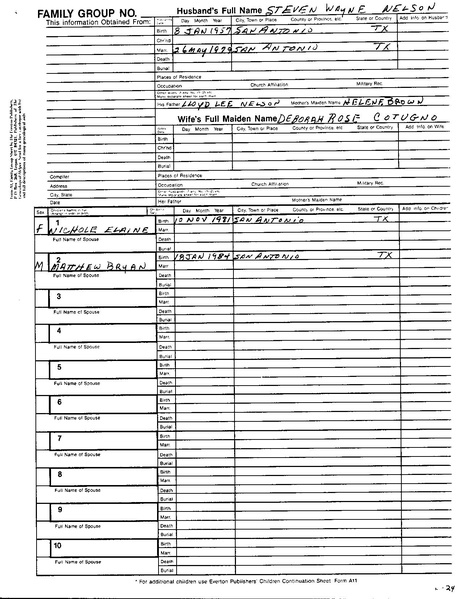 FAMILY GROUP NO.
This Information Obtained From:
Husband's Full Name STEVEN WAYNE NELSON
Day Month Year City, Town or Place County or Province, etc. State or Country Add. Info. on Husband
Birth 8 JAN 1957 SAN ANTONIO TX
Chr'nd
Marr. 26 MAY 1979 SAN ANTONIO TX
Death
Burial
Places of Residence
Occupation Church Affiliation Military Rec.
His Father LLOYD LEE NELSON Mother's Maiden Name HELENE BROWN
Wife's Full Maiden Name DEBORAH ROSE COTUGNO
Day Month Year City, Town or Place County or Province, etc. State or Country Add. Info. on Wife
Birth
Chr'nd
Death
Burial
Compiler Places of Residence
Address Occupation Church Affiliation Military Rec.
City, State
Date Her Father Mother's Maiden Name
Sex Day Month Year City, Town or Place County or Province, etc. State or Country Add. Info. on Children
1 Birth 10 NOV 1981 SAN ANTONIO TX
F NICHOLE ELAINE Marr.
Full Name of Spouse Death
Burial
2 Birth 18 JAN 1984 SAN ANTONIO TX
M MATTHEW BRYAN Marr.
Full Name of Spouse Death
Burial
3 Birth
Marr.
Full Name of Spouse Death
Burial
4 Birth
Marr.
Full Name of Spouse Death
Burial
5 Birth
Marr.
Full Name of Spouse Death
Burial
6 Birth
Marr.
Full Name of Spouse Death
Burial
7 Birth
Marr.
Full Name of Spouse Death
Burial
8 Birth
Marr.
Full Name of Spouse Death
Burial
9 Birth
Marr.
Full Name of Spouse Death
Burial
10 Birth
Marr.
Full Name of Spouse Death
Burial
* For additional children use Everton Publishers' Children Continuation Sheet. Form A11